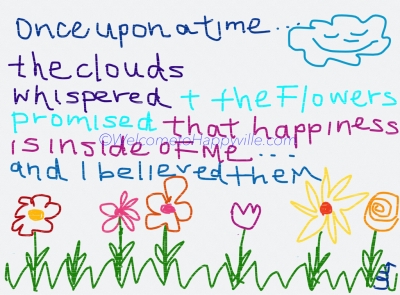 Once upon a time...
the clouds
whispered + the Flowers
promised that happiness
©WelcometoHappyville.com
is inside of Me...
and I believed them